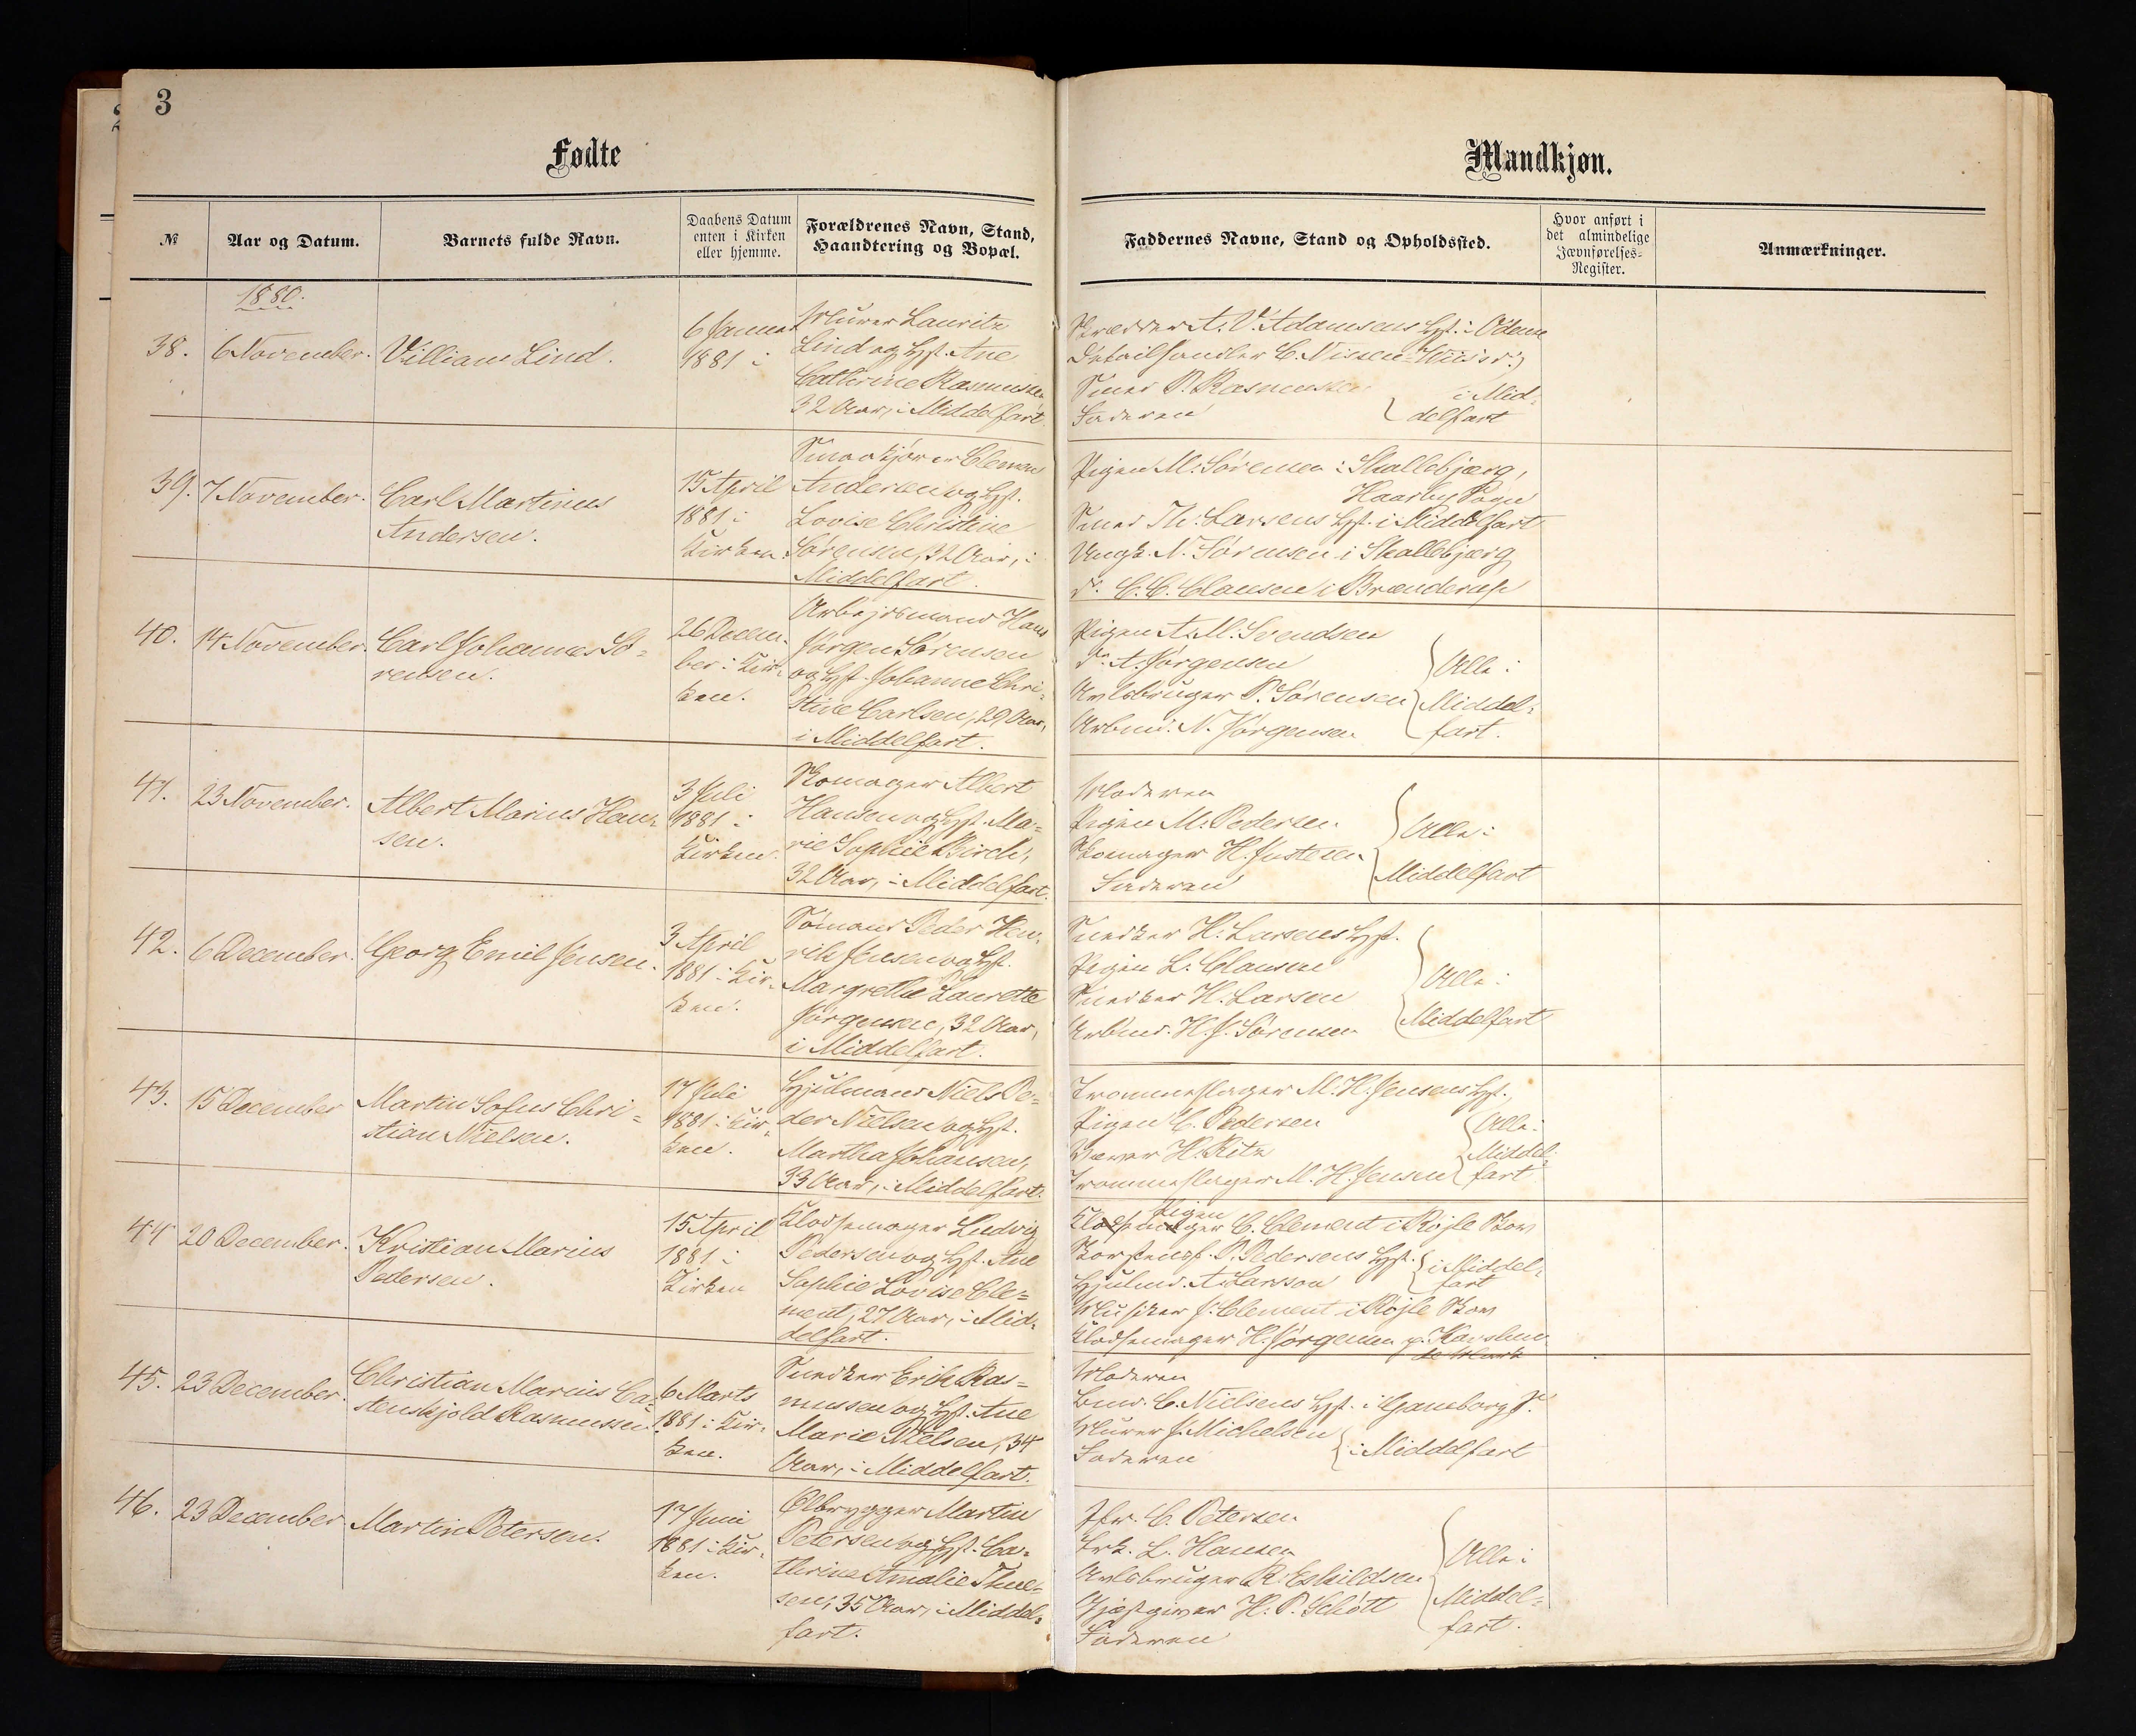 3
Fødte
Mandkjøn.
№
Aar og Datum.
Barnets fulde Navn.
Daabens Datum
enten i Kirken
eller hjemme.
Forældrenes Navn, Stand,
Haandtering og Bopæl.
Faddernes Navne, Stand og Opholdssted.
Hvor anført i
det almindelige
Jævnførelses-
Register.
Anmærkninger.
1880.
38.
6 November.
Villiam Lind.
6 Januar
1881 i
Murer Lauritz
Lind og Hst. Ane
Cathrine Rasmussen
32 Aar, i Middelfart.
Skrædder A. V. Adamsens Hst. i Odense
Detailhandler C. Nissen
Smed P. Rasmussen
Faderen
i Mid-
delfart
39.
7 November.
Carl Martinus
Andersen.
15 April
1881 i
Kirken.
Clemen
Andersen og Hst.
Lovise Christine
Sørensen, 32 Aar, i
Middelfart.
Pigen M. Sørensen i Skallebjærg,
Haarby Sogn
Smed Th. Larsens Hst. i Middelfart
Ungk. N. Sørensen i Skallebjærg
do. C. C. Clausen i Brænderup
40.
14 November.
Carl Johannes Sø-
rensen.
26 Decem-
ber i Kir-
ken.
Arbejdsmand Hans
Jørgen Sørensen
og Hst. Johanne Chri-
stine Carlsen, 29 Aar,
i Middelfart.
Pigen A. M. Svendsen
do. A. Jørgensen
Avlsbruger P. Sørensen
Arbmd. N. Jørgensen
Alle i
Middel-
fart.
41.
23 November.
Albert Marius Han-
sen.
3 Juli
1881 i
Kirken.
Skomager Albert
Hansen og Hst. Ma-
rie Sophie Birch,
32 Aar, i Middelfart.
Moderen
Pigen M. Pedersen
Skomager H. Justesen
Faderen
Alle i
Middelfart
42.
6 December.
Georg Emil Jensen.
3 April
1881 i Kir-
ken.
Sømand Peder Hen-
rik Jensen og Hst.
Margrethe Laurette
Jørgensen, 32 Aar,
i Middelfart.
Snedker H. Larsens Hst.
Pigen L. Clausen
Snedker H. Larsen
Arbmd. H. J. Sørensen
Alle i
Middelfart
43.
15 December
Martin Sofus Chri-
stian Nielsen.
17 Juli
1881 i Kir-
ken.
Hjulmand Niels Pe-
der Nielsen og Hst.
Martha Johansen,
33 Aar, i Middelfart.
Trommeslager M. H. Jensens Hst.
Pigen C. Pedersen
Væver H. Ritz
Trommeslager M. H. Jensen
Alle i
Middel-
fart
44
20 December.
Kristian Marius
Pedersen.
15 April
1881 i
Kirken
Klodsemager Ludvig
Pedersen og Hst. Ane
Sophie Lovise Cle-
ment, 27 Aar, i Mid-
delfart.
Pigen
Klodsemager C. Clement i Røjle Skov
Skorstensf. P. Pedersens Hst.
Hjulmd. A. Larsson
i Middel-
fart
Musiker J. Clement i Røjle Skov
Klodsemager H. Jørgensen
Mark
45.
23 December.
Christian Marius Ca-
stenskjold Rasmussen.
6 Marts
1881 i Kir-
ken.
Snedker Erik Ras-
mussen og Hst. Ane
Marie Nielsen, 34
Aar, i Middelfart.
Moderen
Bmd. C. Nielsens Hst. i Gamborg S.
Murer J. Michelsen
Faderen
i Middelfart
46.
23 December
Martin Petersen.
17 Juni
1881 i Kir-
ken.
Ølbrygger Martin
Petersen og Hst. Ca-
thrine Amalie Thue-
sen, 35 Aar, i Middel-
fart.
Jfr. C. Petersen
Frk. L. Hansen
Avlsbruger R. Eskildsen
Gjæstgiver H. P. Schøtt
Faderen
Alle i
Middel-
fart.